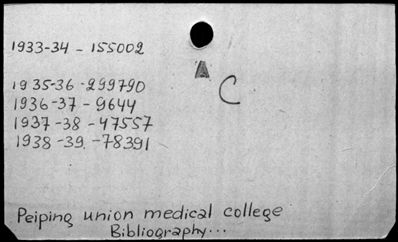 1933-34 - 155002
A
C
1935-36 - 299790
1936-37 - 9644
1937-38 - 47557
1938-39. - 78391
Peiping union medical college
Bibliography...